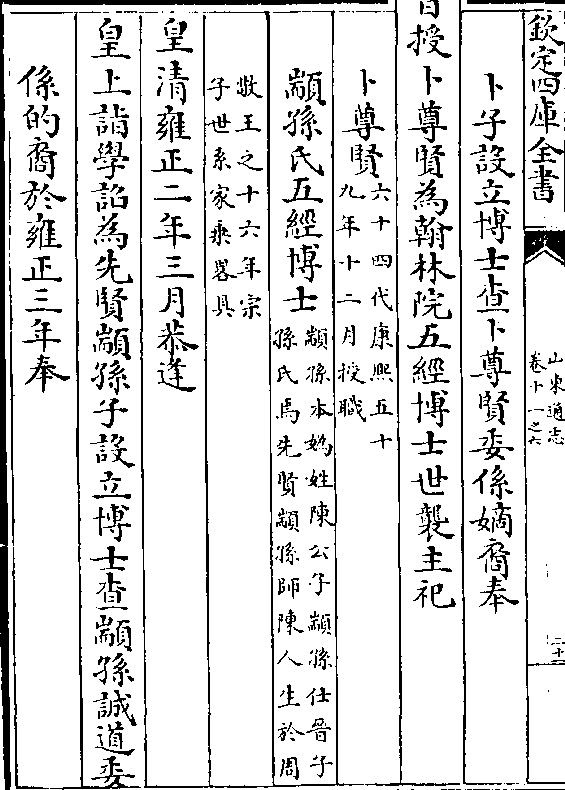 欽定四庫全書
山東通志
卷十一之六
二十
卜子設立博士查卜尊賢委係嫡裔奉
旨授卜尊賢為翰林院五經博士世襲主祀
卜尊賢六十四代康熙五十
九年十二月授職
顓孫氏五經博士顓孫本媯姓陳公子顓孫仕晉子
孫氏焉先賢顓孫師陳人生於周
敬王之十六年宗
子世系家乘畧具
皇清雍正二年三月恭逢
皇上詣學詔為先賢顓孫子設立博士查顓孫誠道委
係的裔於雍正三年奉